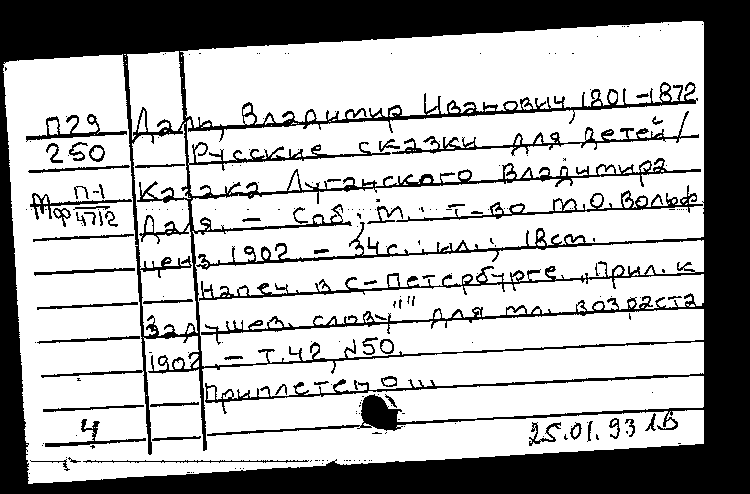 П29 Даль, Владимир Иванович, 1801-1872
250 Русские сказки для детей /
Мф П-1 47/2 Казака Луганского Владимира
Даля. - Спб.; М.: Т-во М.О. Вольф
ценз. 1902 - 34 с.: ил.; 18 см.
Напеч. в С-Петербурге. „Прил. к
Задушев. слову"" для мл. возраста.
1902. - Т.42, N50.
Приплетено
4
25.01.93